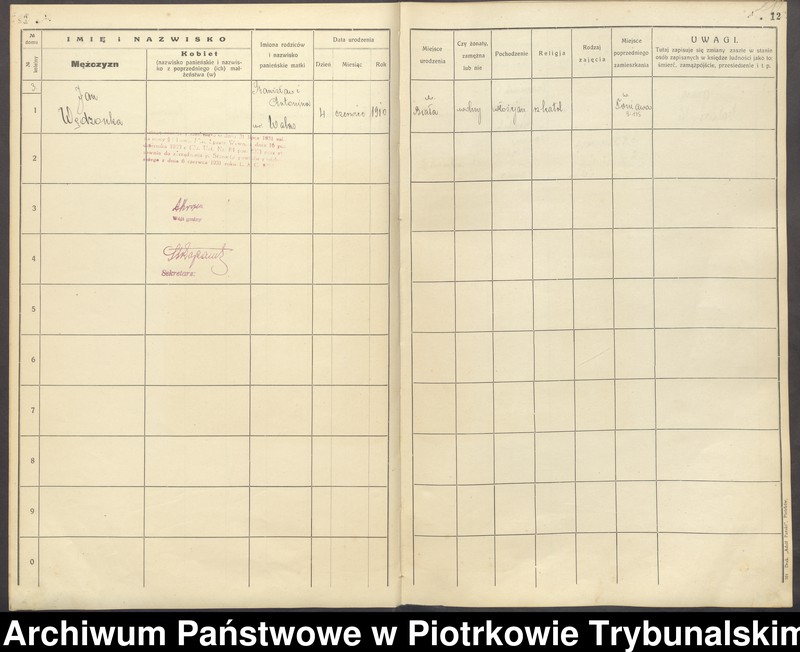 12
№ domu
№ kolejny
IMIĘ i NAZWISKO
Mężczyzn
Kobiet
(nazwisko panieńskie i nazwis-
ko z poprzedniego (ich) mał-
żeństwa (w)
Imiona rodziców
i nazwisko
panieńskie matki
Data urodzenia
Dzień
Miesiąc
Rok
Miejsce
urodzenia
Czy żonaty,
zamężna
lub nie
Pochodzenie
Religja
Rodzaj
zajęcia
Miejsce
poprzedniego
zamieszkania
UWAGI.
Tutaj zapisuje się zmiany zaszłe w stanie
osób zapisanych w księdze ludności jako to:
śmierć, zamążpójście, przesiedlenie i t. p.
3
1
Jan
Wędzonka
Stanisław i
Antonina
Walas
4
czerwiec
1910
w
Biała
wolny
włościjan.
rz-katol.
w
2
3
Wójt gminy
4
Sekretarz:
5
6
7
8
9
0
Archiwum Państwowe w Piotrkowie Trybunalskim